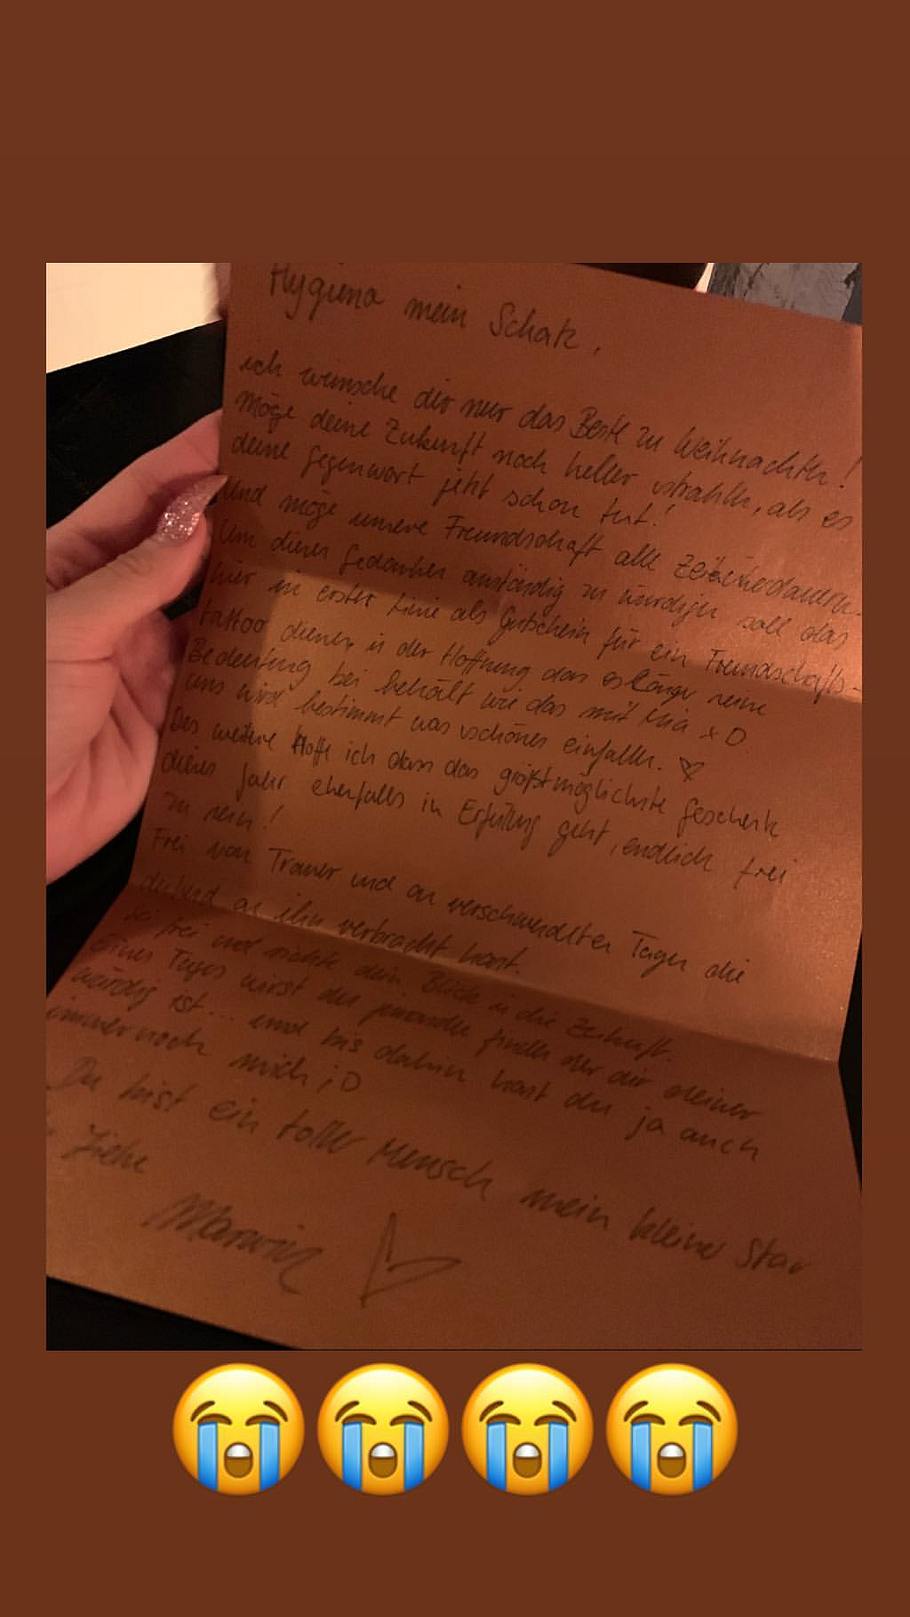 Hygiena mein Schatz,
ich wünsche dir nur das Beste zu Weihnachten!
Möge deine Zukunft noch heller strahlen, als es
deine Gegenwart jetzt schon tut!
Und möge unsere Freundschaft alle
Um diesen Gedanken anständig zu würdigen soll das
hier in erster Linie als Gutschein für ein Freundschafts-
tattoo dienen, in der Hoffnung das es länger seine
Bedeutung bei behält wie das mit Mia xD
uns wird bestimmt was schönes einfallen. ♡
Des weitere Hoffe ich dass das größtmöglichste Geschenk
dieses Jahr ebenfalls in Erfüllung geht, endlich frei
zu sein!
Frei von Trauer und an verschwendeten Tagen die
du an ihn verbracht hast.
Sei frei und richte dein Blick in die Zukunft.
Eines Tages wirst du jemanden finden der dir deiner
würdig ist... und bis dahin hast du ja auch
immernoch mich ;D
Du bist ein toller Mensch mein kleiner Star
Liebe
Marwin ♡
😭😭😭😭